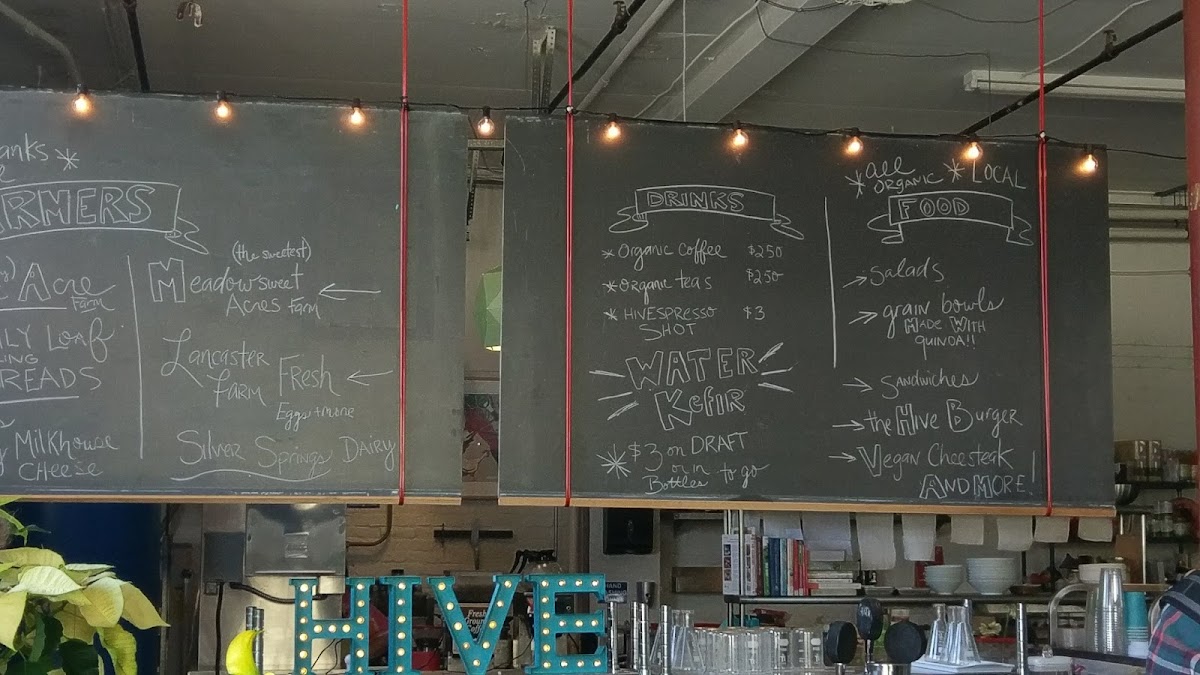 anks *
ARMERS
Acre
Farm
ILY Loaf
ING
READS
Milkhouse
CHEESE
(the sweetest)
Meadowsweet
Acres Farm
Lancaster
FARM FRESH
Eggs + more
Silver Springs Dairy
DRINKS
* Organic Coffee $2.50
* Organic teas $2.50
* HIVESPRESSO $3
SHOT
WATER
KeFIR
* $3 on DRAFT
or in to go
Bottles
* all ORGANIC * LOCAL
FOOD
→ Salads
→ grain bowls
MADE WITH
QUINOA!!
→ SANDWICHES
→ the Hive Burger
→ Vegan Cheesteak
AND MORE!
HIVE
Fresh
Ground